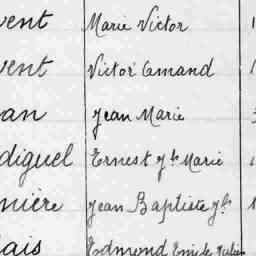 vent Marie Victor 1
vent Victor Amand 1
an Jean Marie
diguel Ernest Marie
nière Jean Baptiste
lais Edmond Emile Julien